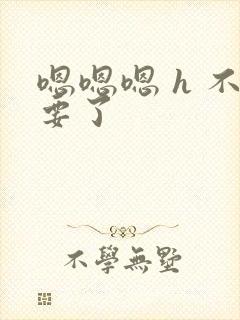 嗯嗯嗯h不
要了
不學無墅